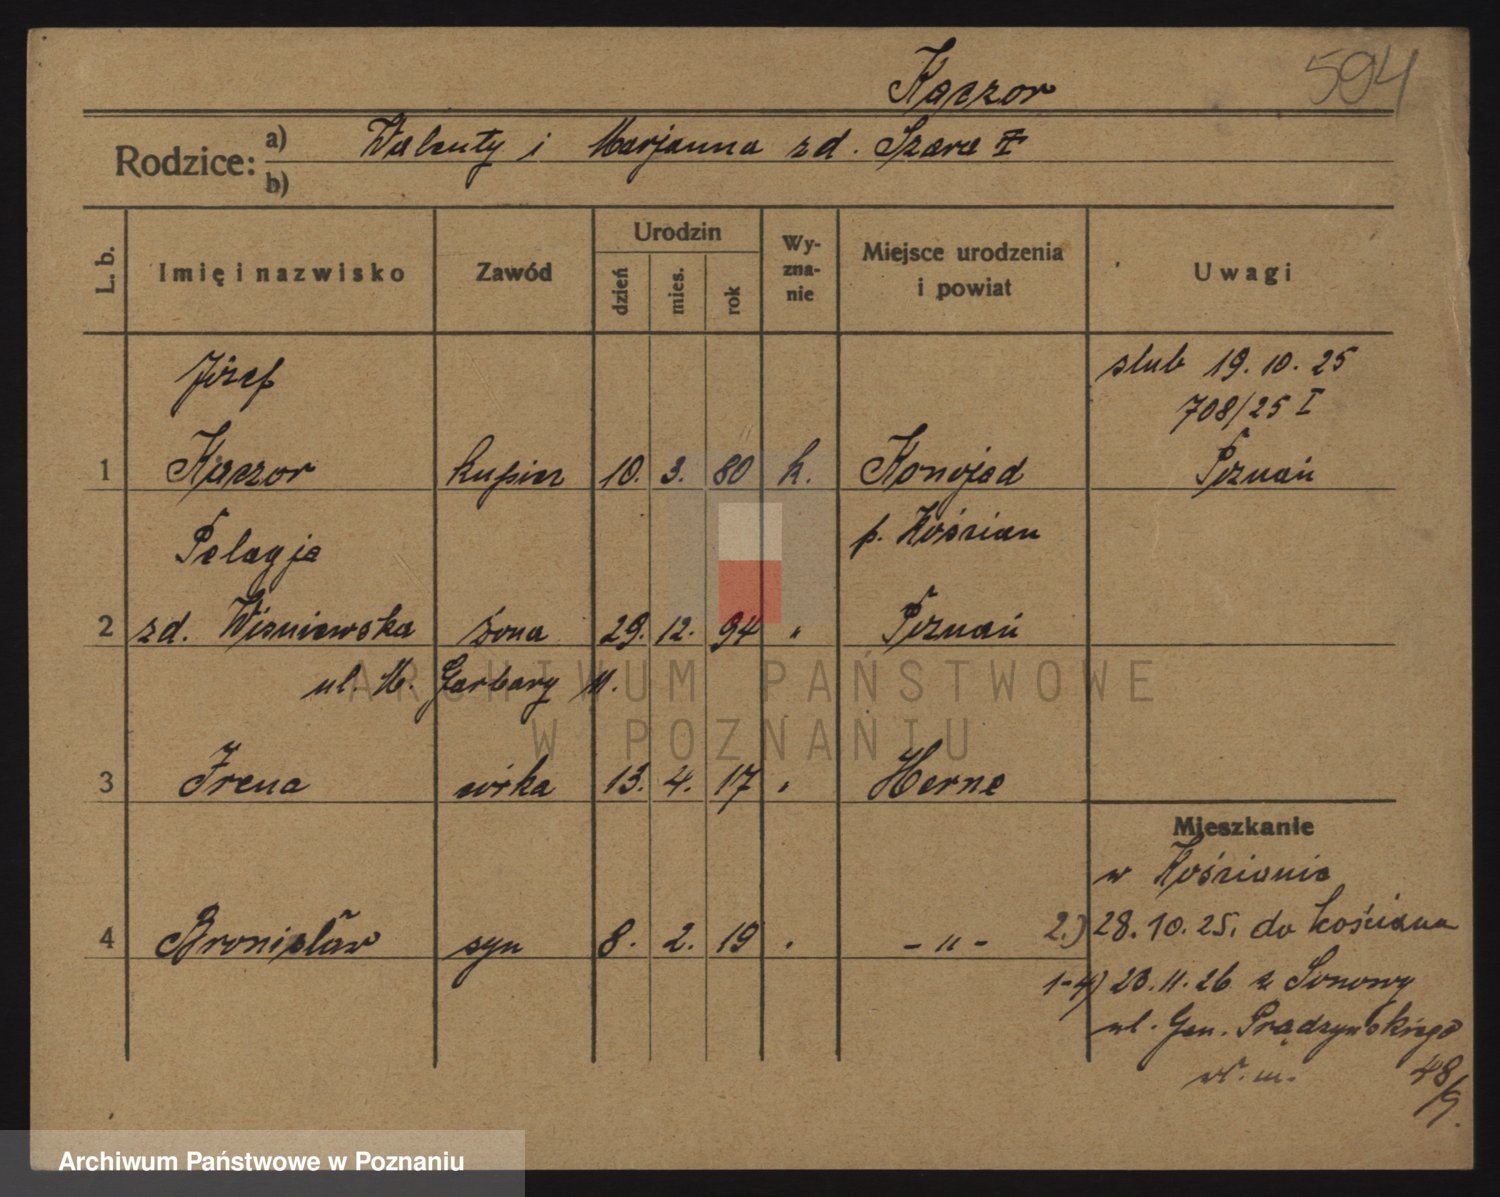 594
Kaczor
Rodzice: a) Walenty i Marjanna zd. Szara
b)
L. b. Imię i nazwisko Zawód Urodzin dzień mies. rok Wy-zna-nie Miejsce urodzenia i powiat Uwagi
Józef ślub 19. 10. 25
708/25 I
1 Kaczor kupiec 10. 3. 80 k. Konojad Poznań
Pelagja p. Kościan
2 zd. Wiśniewska żona 29. 12. 94 " Poznań
ul. M. Garbary 11.
3 Irena córka 13. 4. 17 " Herne
Mieszkanie
w Kościanie
4 Bronisław syn 8. 2. 19 " - " - 2.) 28. 10. 25. do Kościana
1-4) 23. 11. 26 z
ul. Gen. Prądzyńskiego
48/9.
ARCHIWUM PAŃSTWOWE
W POZNANIU
Archiwum Państwowe w Poznaniu